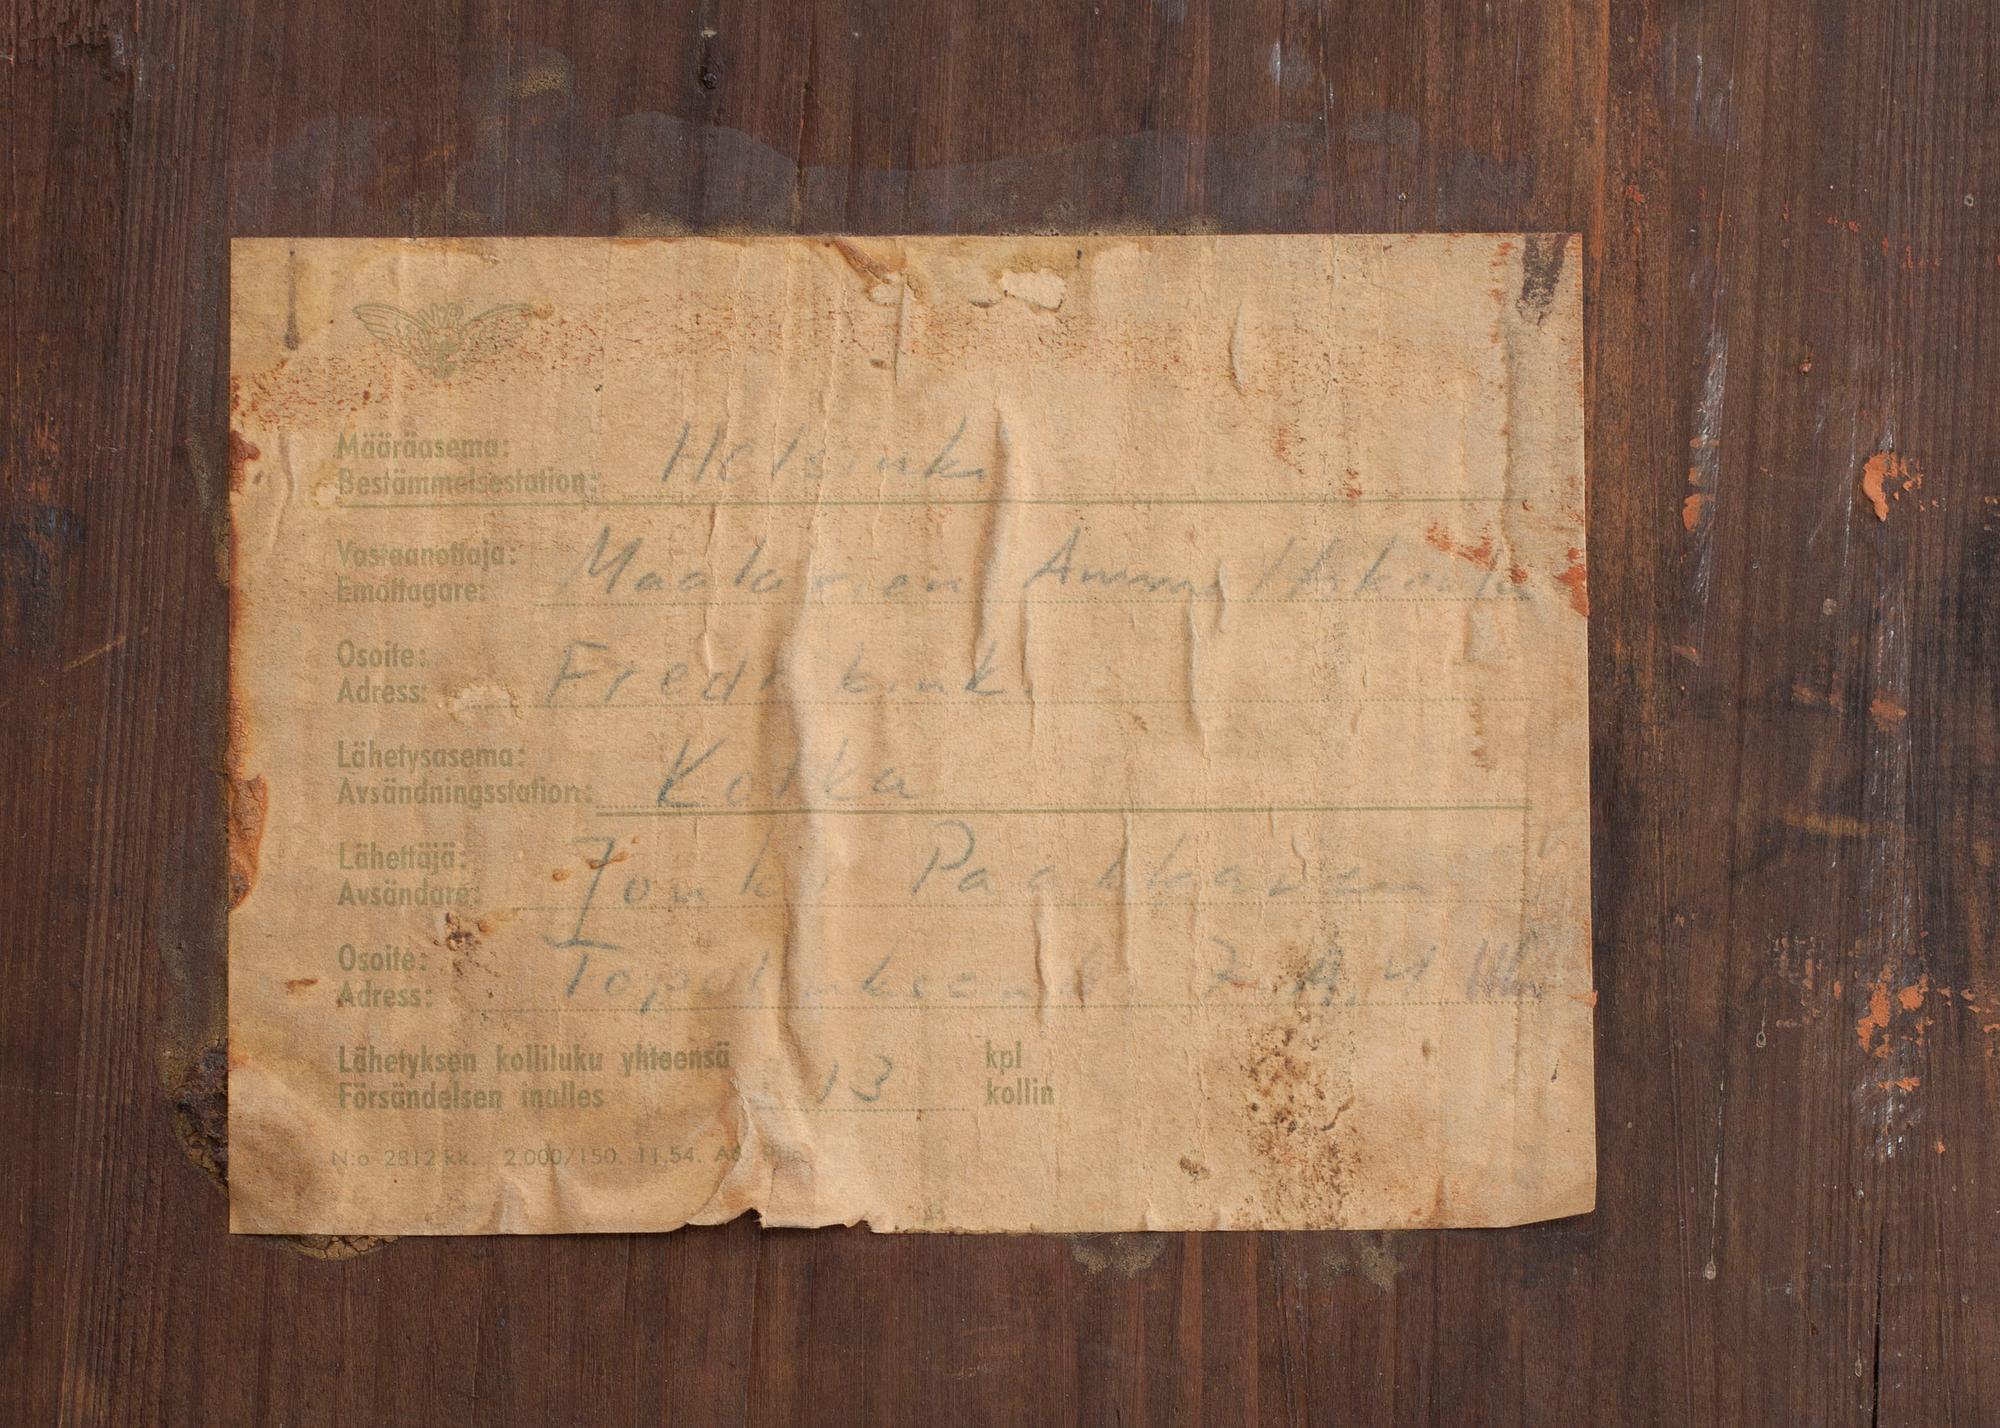 Määräasema:
Bestämmelsestation: Helsinki
Vastaanottaja:
Emottagare: Maalarien Ammattikoulu
Osoite:
Adress: Fredrikink.
Lähetysasema:
Avsändningsstation: Kotka
Lähettäjä:
Avsändare: Jouko Paakkanen
Osoite:
Adress: 7 A. 4
Lähetyksen kolliluku yhteensä kpl
Försändelsen inalles 13 kollin
N:o 2812 kk. 2.000/150. 11.54.